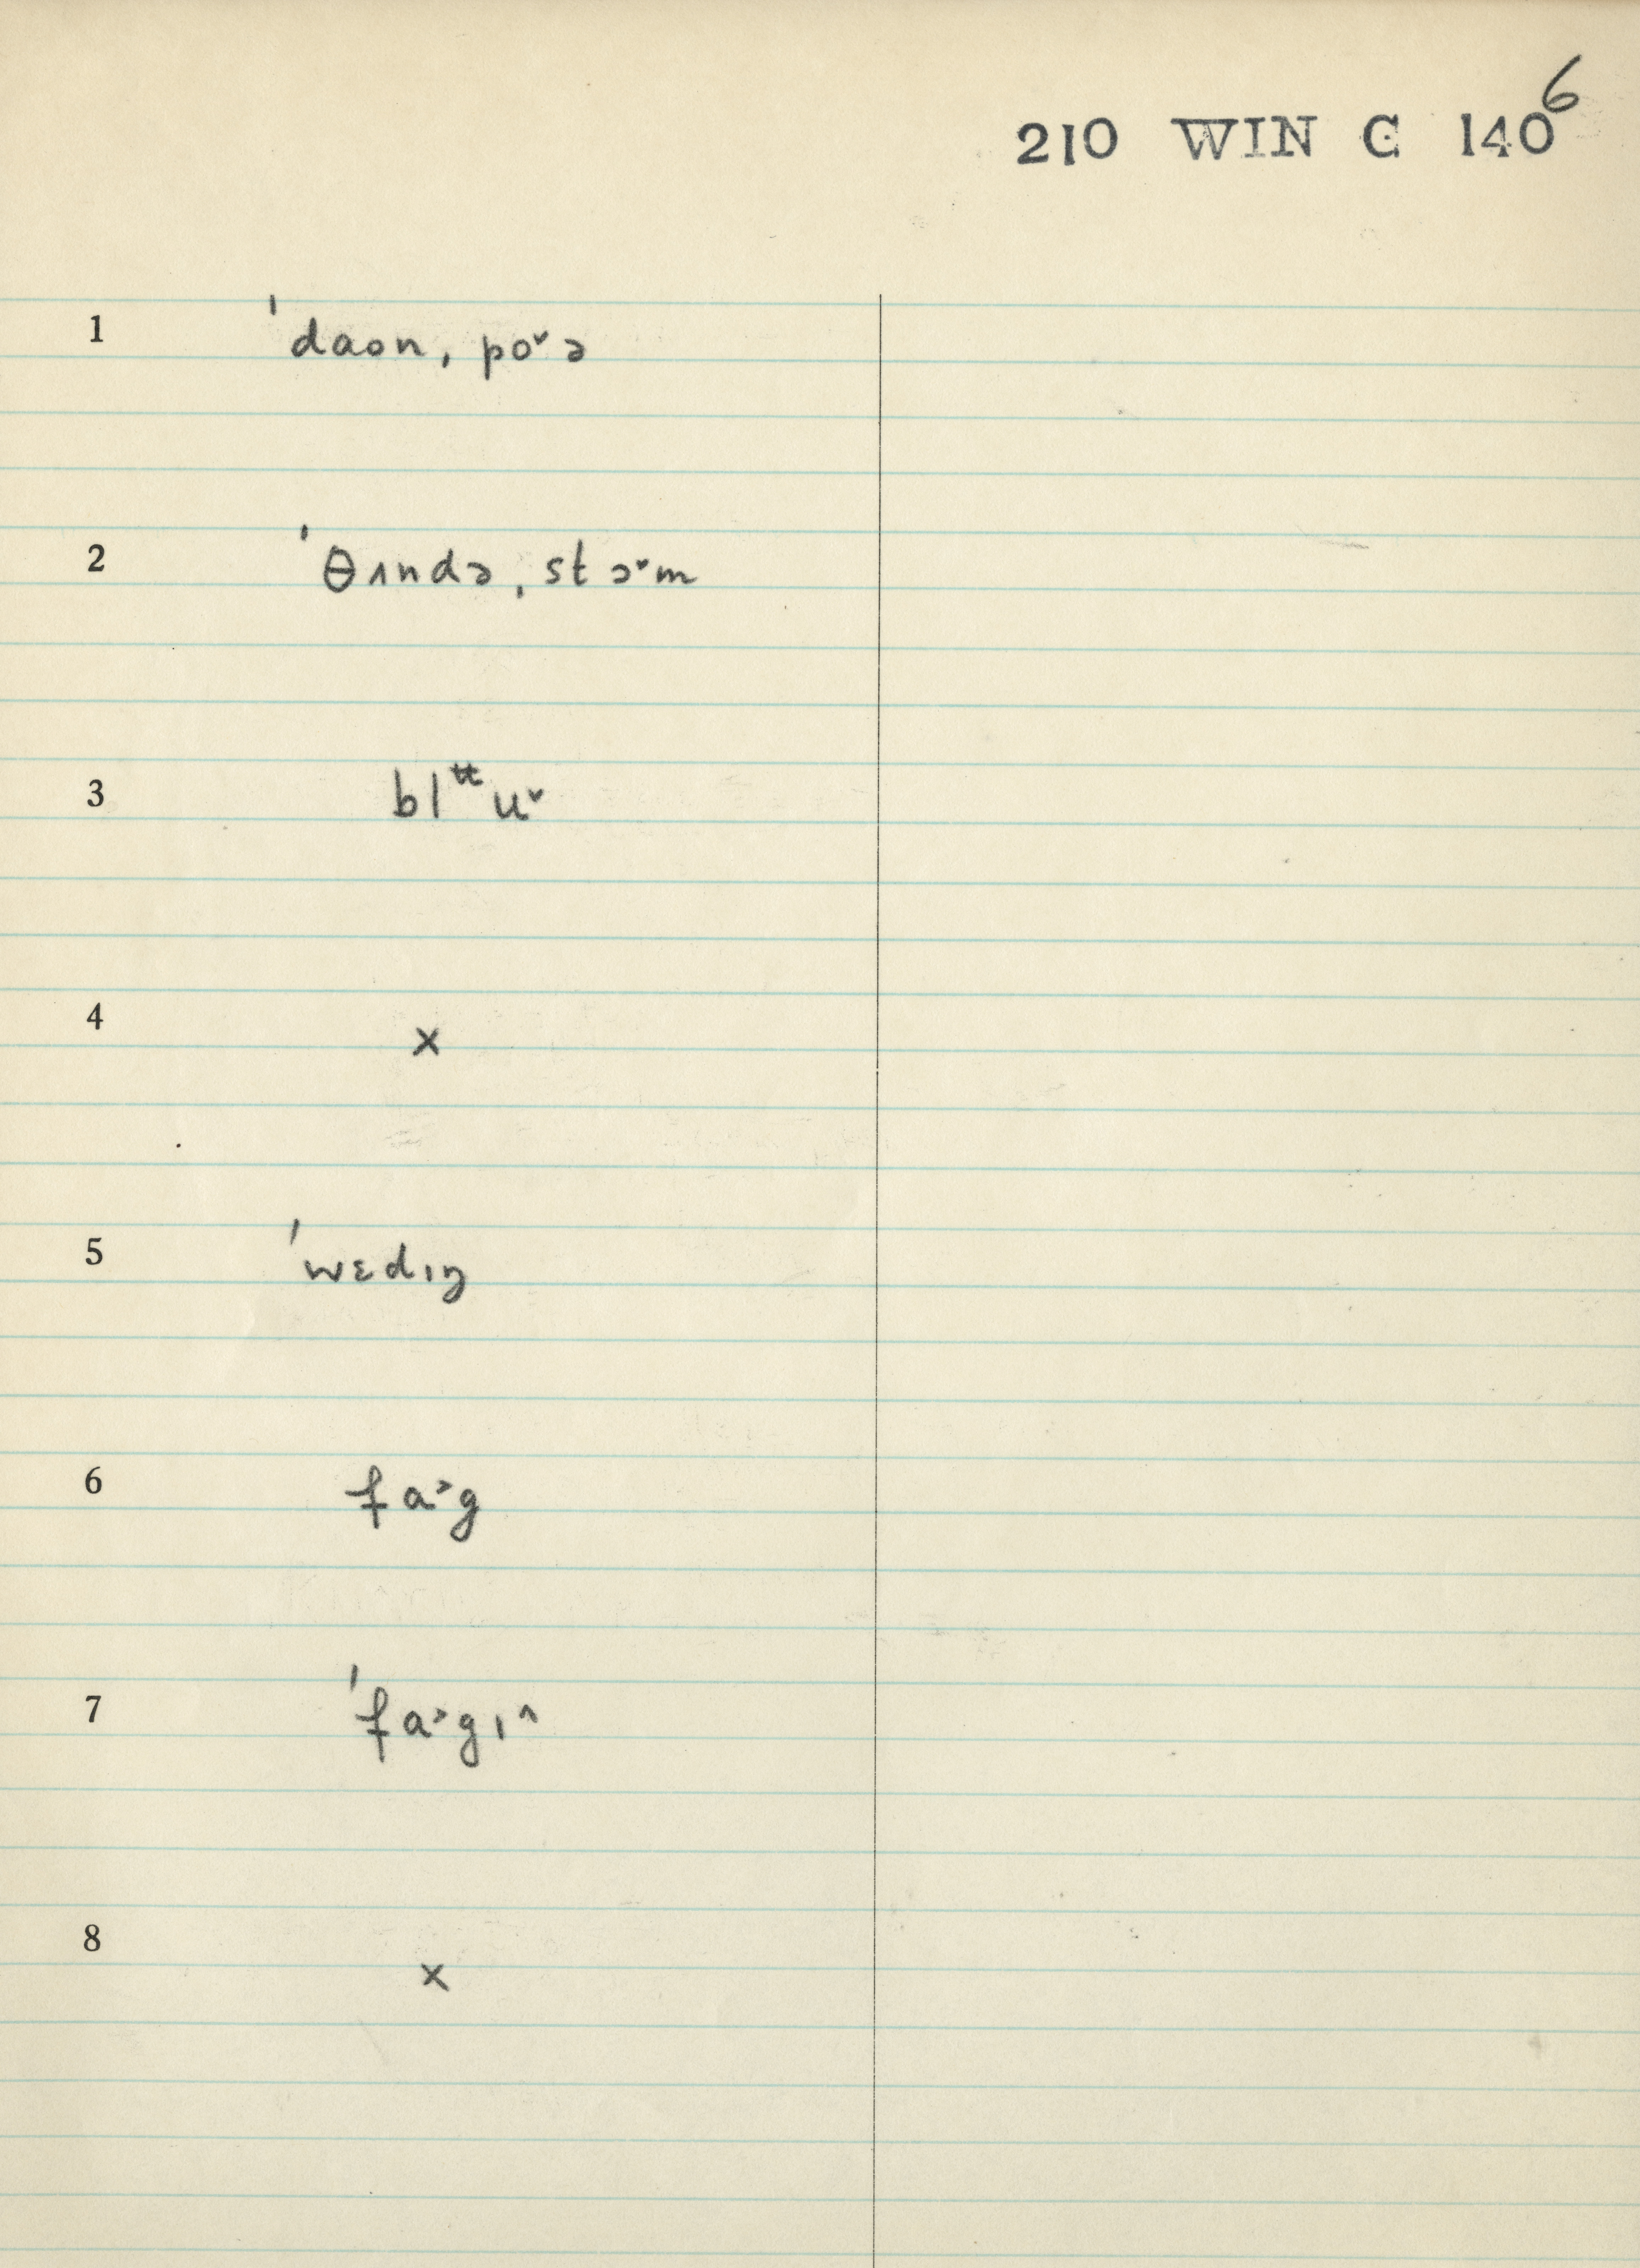 6
210 WIN C 140
1 ˈdaon, poˇə
2 ˈθʌndə, stɔˇm
3 blᵗᵗuˇ
4 x
5 ˈwɛdɪŋ
6 fa˃g
7 ˈfa˃gɪ^
8 x